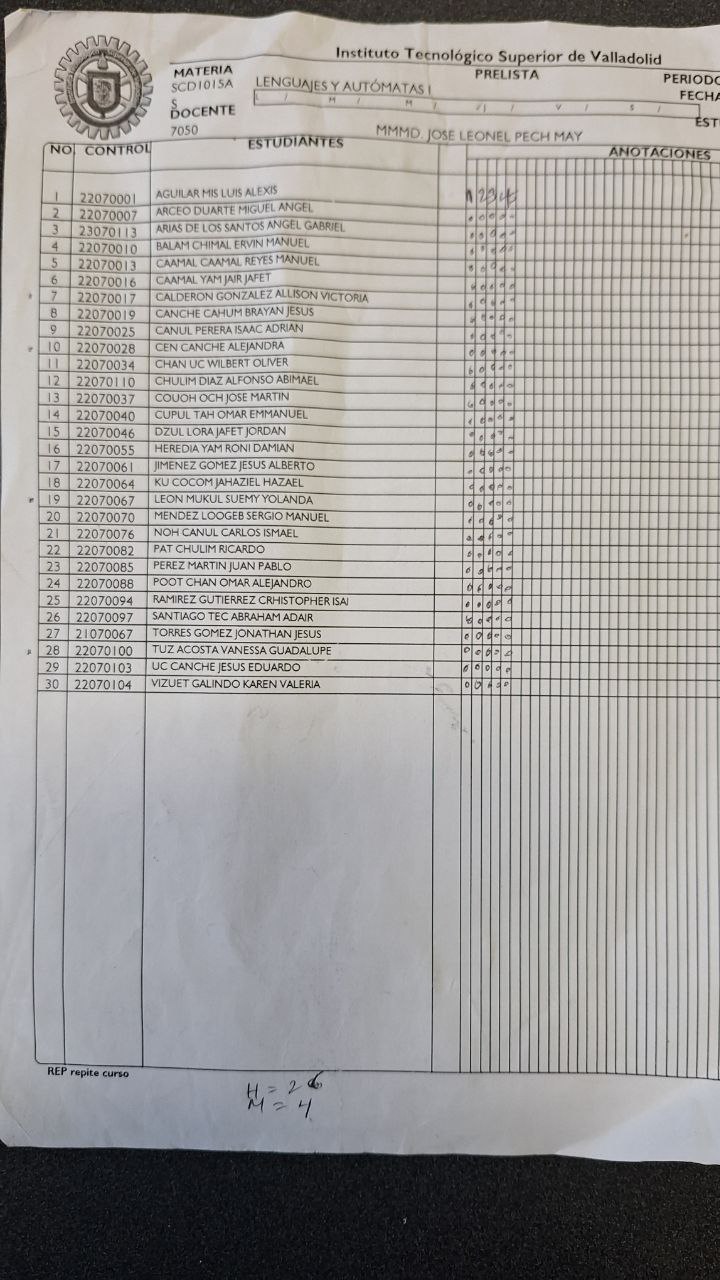 Instituto Tecnológico Superior de Valladolid
MATERIA PRELISTA PERIODO
SCD1015A LENGUAJES Y AUTÓMATAS I FECHA
S L / M / M / J / V / S /
DOCENTE EST
7050 MMMD. JOSE LEONEL PECH MAY
NO. CONTROL ESTUDIANTES ANOTACIONES
1 2 3 4
1 22070001 AGUILAR MIS LUIS ALEXIS
2 22070007 ARCEO DUARTE MIGUEL ANGEL
3 23070113 ARIAS DE LOS SANTOS ANGEL GABRIEL
4 22070010 BALAM CHIMAL ERVIN MANUEL
5 22070013 CAAMAL CAAMAL REYES MANUEL
6 22070016 CAAMAL YAM JAIR JAFET
7 22070017 CALDERON GONZALEZ ALLISON VICTORIA
8 22070019 CANCHE CAHUM BRAYAN JESUS
9 22070025 CANUL PERERA ISAAC ADRIAN
10 22070028 CEN CANCHE ALEJANDRA
11 22070034 CHAN UC WILBERT OLIVER
12 22070110 CHULIM DIAZ ALFONSO ABIMAEL
13 22070037 COUOH OCH JOSE MARTIN
14 22070040 CUPUL TAH OMAR EMMANUEL
15 22070046 DZUL LORA JAFET JORDAN
16 22070055 HEREDIA YAM RONI DAMIAN
17 22070061 JIMENEZ GOMEZ JESUS ALBERTO
18 22070064 KU COCOM JAHAZIEL HAZAEL
19 22070067 LEON MUKUL SUEMY YOLANDA
20 22070070 MENDEZ LOOGEB SERGIO MANUEL
21 22070076 NOH CANUL CARLOS ISMAEL
22 22070082 PAT CHULIM RICARDO
23 22070085 PEREZ MARTIN JUAN PABLO
24 22070088 POOT CHAN OMAR ALEJANDRO
25 22070094 RAMIREZ GUTIERREZ CRHISTOPHER ISAI
26 22070097 SANTIAGO TEC ABRAHAM ADAIR
27 21070067 TORRES GOMEZ JONATHAN JESUS
28 22070100 TUZ ACOSTA VANESSA GUADALUPE
29 22070103 UC CANCHE JESUS EDUARDO
30 22070104 VIZUET GALINDO KAREN VALERIA
REP repite curso
H = 26
M = 4